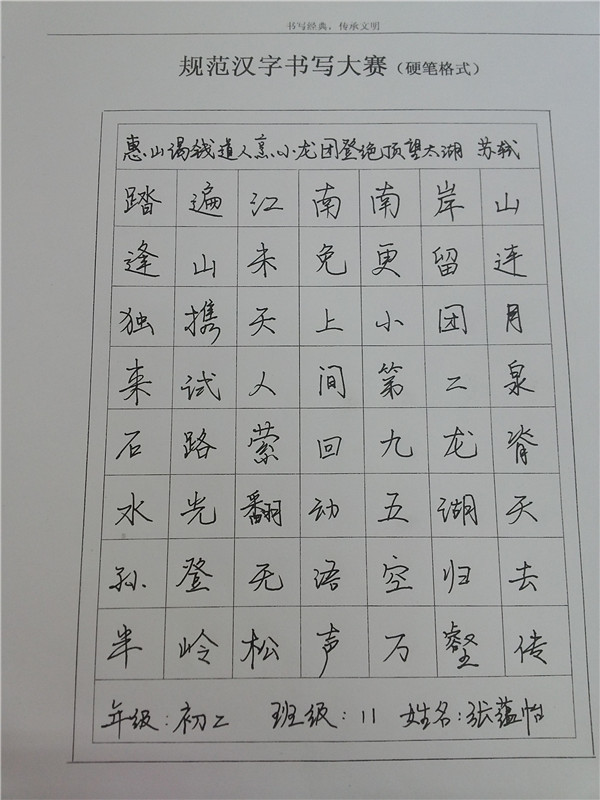 书写经典，传承文明
规范汉字书写大赛（硬笔格式）
惠山谒钱道人烹小龙团登绝顶望太湖 苏轼
踏遍江南南岸山
逢山未免更留连
独携天上小团月
来试人间第二泉
石路萦回九龙脊
水光翻动五湖天
孙登无语空归去
半岭松声万壑传
年级：初二 班级：11 姓名：张蕴怡